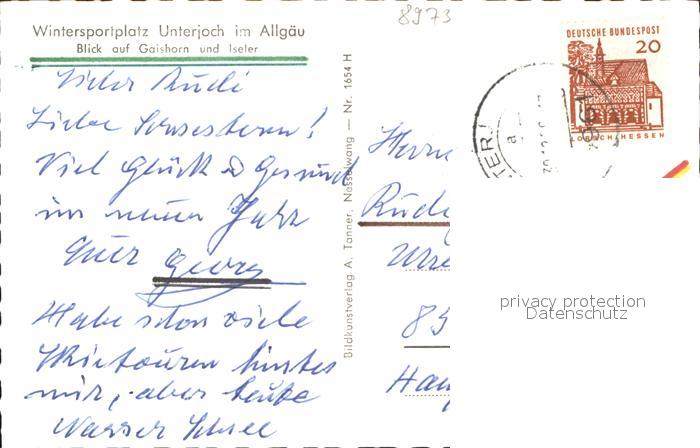 8973
Wintersportplatz Unterjoch im Allgäu
Blick auf Gaishorn und Iseler
Lieber Rudi
Liebe Schwestern!
Viel Glück & Gesund
im neuen Jahr
Euer Georg
Habe schon viele
Skitouren hinter
mir, aber heute
Wasser Schnee
Bildkunstverlag A. Tanner, Nesselwang — Nr. 1654 H
DEUTSCHE BUNDESPOST
20
LORSCH/HESSEN
Herrn
Rudi
89
privacy protection
Datenschutz